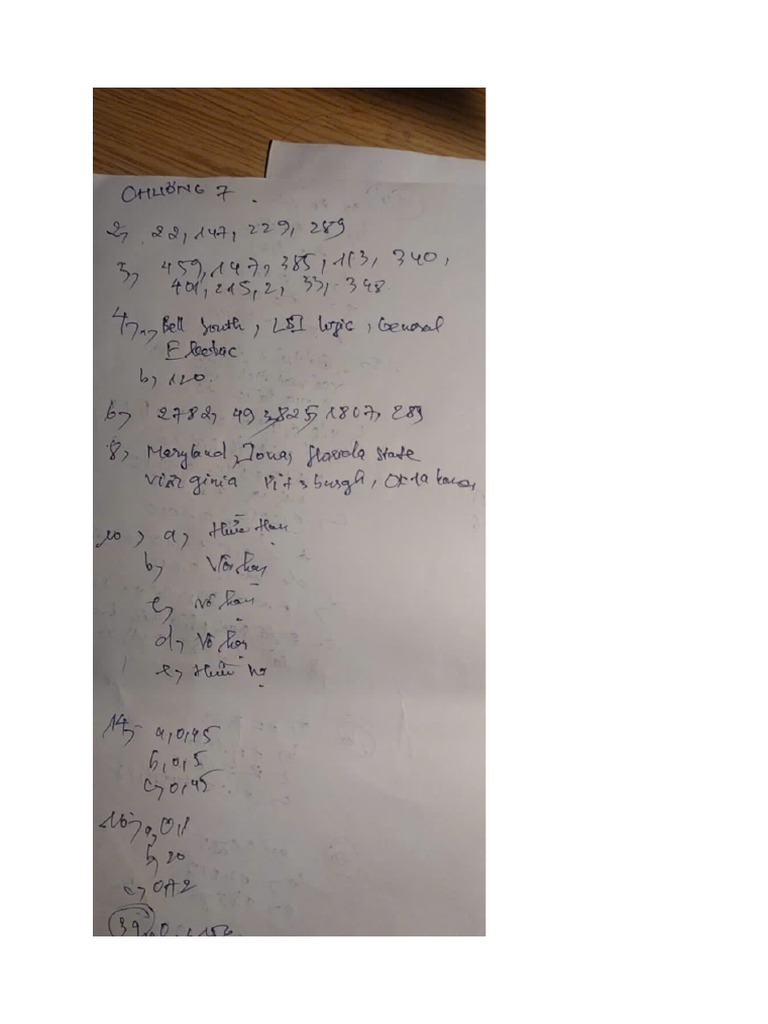 CHƯƠNG 7.
2, 22, 147, 229, 289
3, 459, 147, 385, 113, 340,
401, 215, 2, 33, 348.
4, a, Bell South, LSI logic, General
Electric
b, 120.
6, 2782, 493, 825, 1807, 289
8, Maryland, Iowa, Florida State
Virginia Pittsburgh, Oklahoma
10, a, Hữu Hạn
b, Vô hạn
c, Vô hạn
d, Vô hạn
e, Hữu hạ
14, a, 0,45
b, 0,5
c, 0,45
16, a, 0,1
b, 20
c, 0,72
39